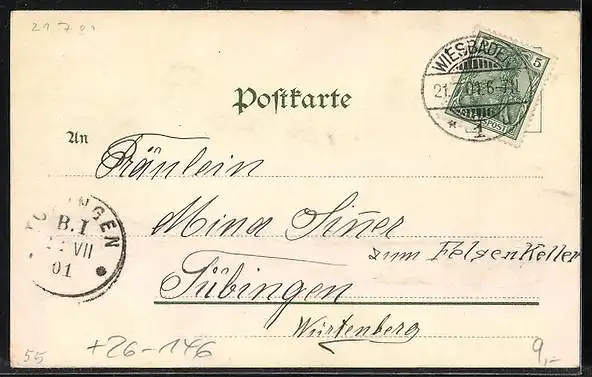 21 7 01
WIESBADEN
21.7.01.6-7N
1
5
Postkarte
An
Fräulein
Mina Siner
zum Felsenkeller
Tübingen
Würtenberg
B.I
VII
01
55
+26-146
9,-